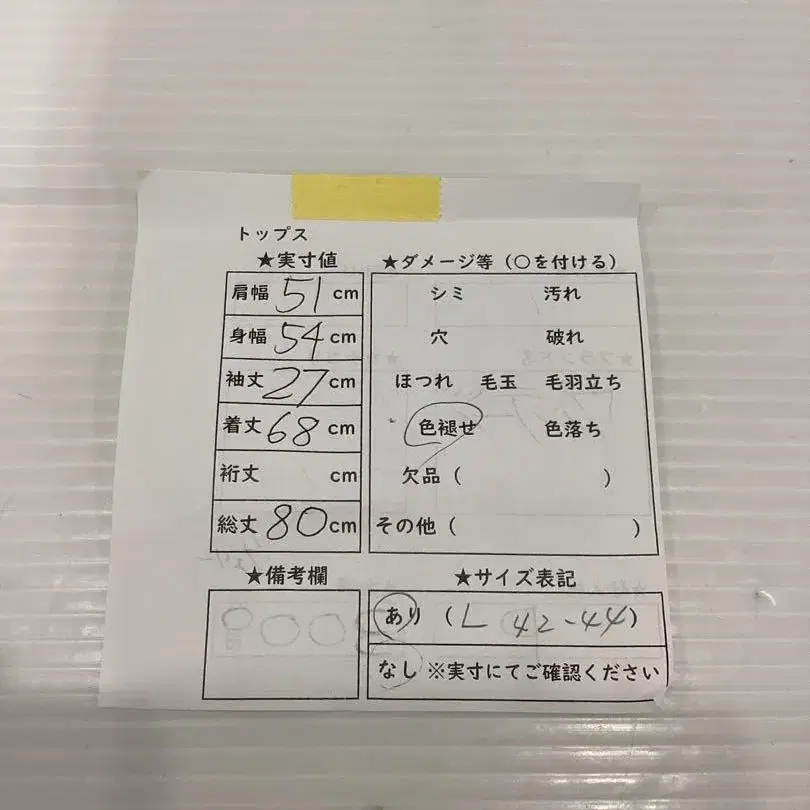 トップス
★実寸値
肩幅 51 cm
身幅 54 cm
袖丈 27 cm
着丈 68 cm
裄丈 cm
総丈 80 cm
★ダメージ等（○を付ける）
シミ 汚れ
穴 破れ
ほつれ 毛玉 毛羽立ち
色褪せ 色落ち
欠品（ ）
その他（ ）
★備考欄
★サイズ表記
あり （L 42-44）
なし ※実寸にてご確認ください